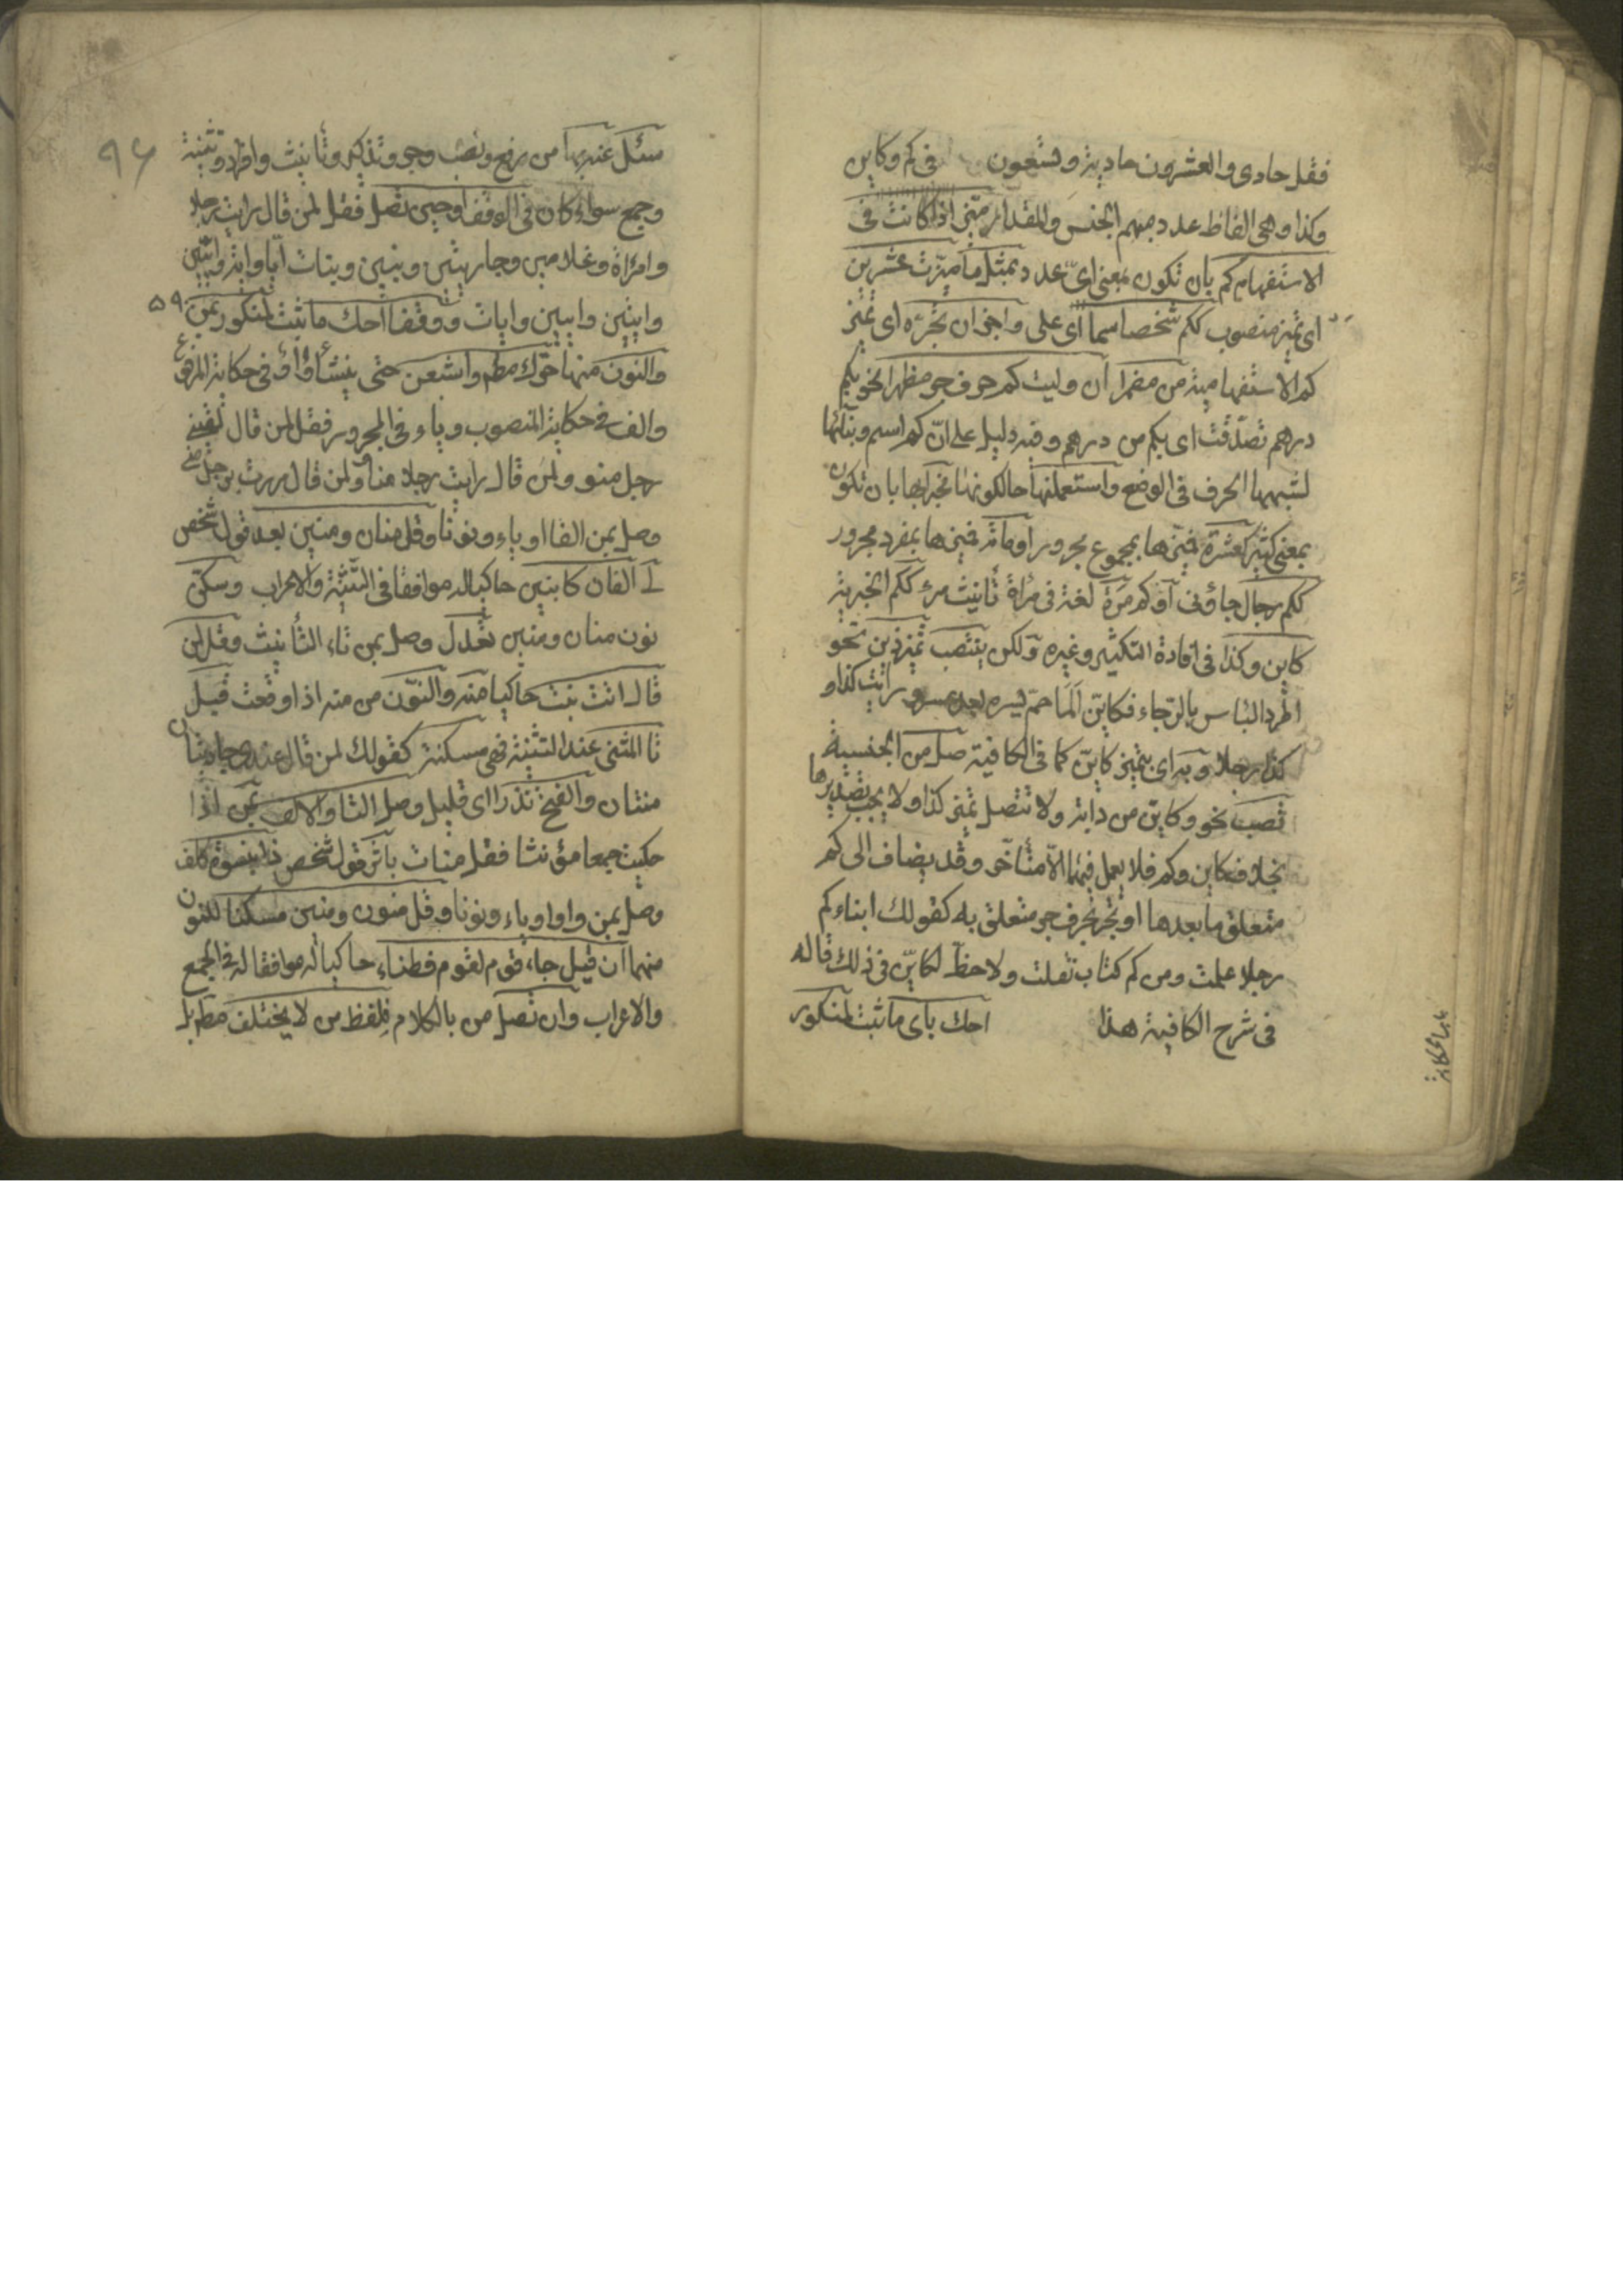 فقل حادى والعشرون حادية وتسعون فى كم وكاين
وكذا وهى الفاظ عدد مبهم الجنس والمقدار ميّز اذا كانت فى
الاستفهام كم بان تكون بمعنى اىّ عدد بمثل ما ميّزت عشرين
اى تميز منصوب ككم شخصا سما اى على واجز ان تجرّه اى تميز
كم الاستفهامية من مضمرا ان وليت كم حرف جر مظهرا نحو بكم
درهم تصدّقت اى بكم من درهم وفيه دليل على انّ كم اسم وبنائها
لشبهها الحرف فى الوضع واستعملنها حالكونها مخبرا بها بان تكون
بمعنى كثير كعشرة فميّزها بمجموع مجرور او مائة فميزها بمفرد مجرور
ككم رجال جاؤنى او كم مرة لغة فى مرأة تأنيث مرء ككم الخبرية
كاين وكذا فى افادة التكثير وغيره ولكن ينتصب تميز ذين نحو
اطرد الياس بالرّجاء فكايّن آلما حمّ يسره بعد عسر و رايت كذا و
كذا رجلا وبه اى بتميز كايّن كما فى الكافية صل من الجنسية
تصب نحو وكايّن من دابة ولا تتصل بتميز كذا ولا يجب تصديرها
بخلاف كاين وكم فلا يعمل فيهما الاّ متأخّر وقد يضاف الى كم
متعلق ما بعدها او تجرّ بحرف جر متعلق به كقولك ابناء كم
رجلا علمت ومن كم كتاب نقلت ولا حظّ لكايّن فى ذلك قاله
فى شرح الكافية هذا احك باى ما ثبت لمنكور
باب الحكاية
٩٦
سئل عنه بها من رفع ونصب وجر وتذكير وتانيث وافراد وتثنية
وجمع سواء كان فى الوقف او حين تصل فقل لمن قال رايت رجلا
وامرأة وغلامين وجاريتين وبنين وبنات ايّا واية وايّين
وايتين وايين وايات ووقفا احك ما ثبت لمنكور بمن
٥٩
والنون منها حرّك مطم واشبعن حتى ينشأ واو فى حكاية المرفوع
والف فى حكاية المنصوب وياء فى المجرور فقل لمن قال لقينى
رجل منو ولمن قال رايت رجلا منا ولمن قال مررت برجل منى
وصل بمن الفا او ياء ونونا وقل منان ومنين بعد قول شخص
لى الفان كابنين حاكيا له موافقا فى التثنية والاعراب وسكّن
نون منان ومنين تعدل وصل بمن تاء التأنيث وقل لمن
قال اتت بنت حاكيا منه والنّون من منه اذا وقعت قبل
تا المثنى عند التثنية فهى مسكنة كقولك لمن قال عندى جاريتان
منتان والفتح نذرا اى قليل وصل التا والالف بمن اذا
حكيت جمعا مؤنثا فقل منات باثر قول شخص ذا بنسوة كلف
وصل بمن واوا وياء ونونا وقل منون ومنين مسكنا للنون
منهما ان قيل جاء قوم لقوم فطناء حاكيا له موافقا له فى الجمع
والاعراب وان تصل من بالكلام فلفظ من لا يختلف مطم بل